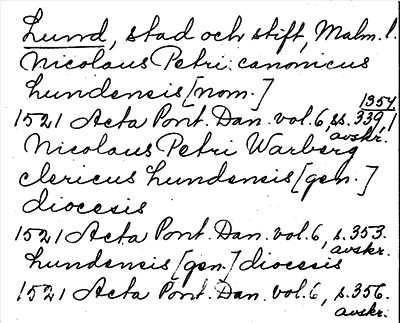 Lund, stad och stift, Malm. l.
Nicolaus Petri canonicus
lundensis [nom.]
1354,
1521 Acta Pont. Dan. vol. 6, ss. 339,
avskr.
Nicolaus Petri Warberg
clericus lundensis [gen.]
diocesis
1521 Acta Pont. Dan. vol. 6, s. 353.
avskr.
lundensis [gen.] diocesis
1521 Acta Pont. Dan. vol. 6, s. 356.
avskr.